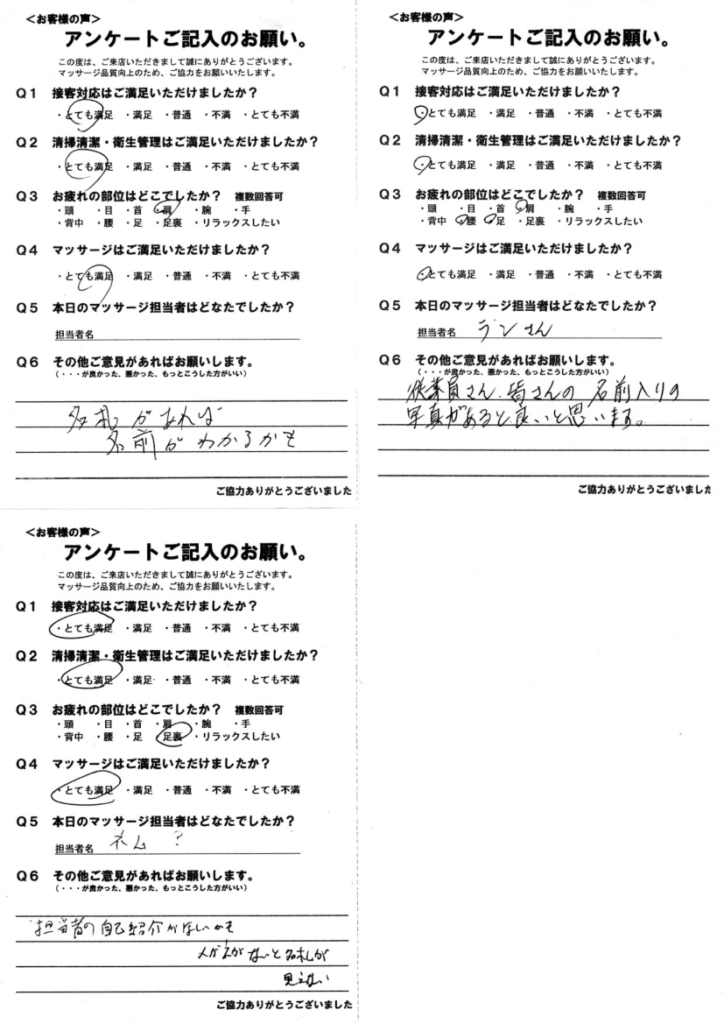 <お客様の声>
アンケートご記入のお願い。
この度は、ご来店いただきまして誠にありがとうございます。
マッサージ品質向上のため、ご協力をお願いいたします。
Q1 接客対応はご満足いただけましたか？
・とても満足 ・満足 ・普通 ・不満 ・とても不満
Q2 清掃清潔・衛生管理はご満足いただけましたか？
・とても満足 ・満足 ・普通 ・不満 ・とても不満
Q3 お疲れの部位はどこでしたか？ 複数回答可
・頭 ・目 ・首 ・肩 ・腕 ・手
・背中 ・腰 ・足 ・足裏 ・リラックスしたい
Q4 マッサージはご満足いただけましたか？
・とても満足 ・満足 ・普通 ・不満 ・とても不満
Q5 本日のマッサージ担当者はどなたでしたか？
担当者名
Q6 その他ご意見があればお願いします。
(・・・が良かった、悪かった、もっとこうした方がいい)
名札があれば
名前がわかるかも
ご協力ありがとうございました
<お客様の声>
アンケートご記入のお願い。
この度は、ご来店いただきまして誠にありがとうございます。
マッサージ品質向上のため、ご協力をお願いいたします。
Q1 接客対応はご満足いただけましたか？
・とても満足 ・満足 ・普通 ・不満 ・とても不満
Q2 清掃清潔・衛生管理はご満足いただけましたか？
・とても満足 ・満足 ・普通 ・不満 ・とても不満
Q3 お疲れの部位はどこでしたか？ 複数回答可
・頭 ・目 ・首 ・肩 ・腕 ・手
・背中 ・腰 ・足 ・足裏 ・リラックスしたい
Q4 マッサージはご満足いただけましたか？
・とても満足 ・満足 ・普通 ・不満 ・とても不満
Q5 本日のマッサージ担当者はどなたでしたか？
担当者名 ランさん
Q6 その他ご意見があればお願いします。
(・・・が良かった、悪かった、もっとこうした方がいい)
従業員さん、皆さんの名前入りの
写真があると良いと思います。
ご協力ありがとうございました
<お客様の声>
アンケートご記入のお願い。
この度は、ご来店いただきまして誠にありがとうございます。
マッサージ品質向上のため、ご協力をお願いいたします。
Q1 接客対応はご満足いただけましたか？
・とても満足 ・満足 ・普通 ・不満 ・とても不満
Q2 清掃清潔・衛生管理はご満足いただけましたか？
・とても満足 ・満足 ・普通 ・不満 ・とても不満
Q3 お疲れの部位はどこでしたか？ 複数回答可
・頭 ・目 ・首 ・肩 ・腕 ・手
・背中 ・腰 ・足 ・足裏 ・リラックスしたい
Q4 マッサージはご満足いただけましたか？
・とても満足 ・満足 ・普通 ・不満 ・とても不満
Q5 本日のマッサージ担当者はどなたでしたか？
担当者名 ネム ？
Q6 その他ご意見があればお願いします。
(・・・が良かった、悪かった、もっとこうした方がいい)
担当者の自己紹介がないかも
メガネがないと名札が
見えない
ご協力ありがとうございました